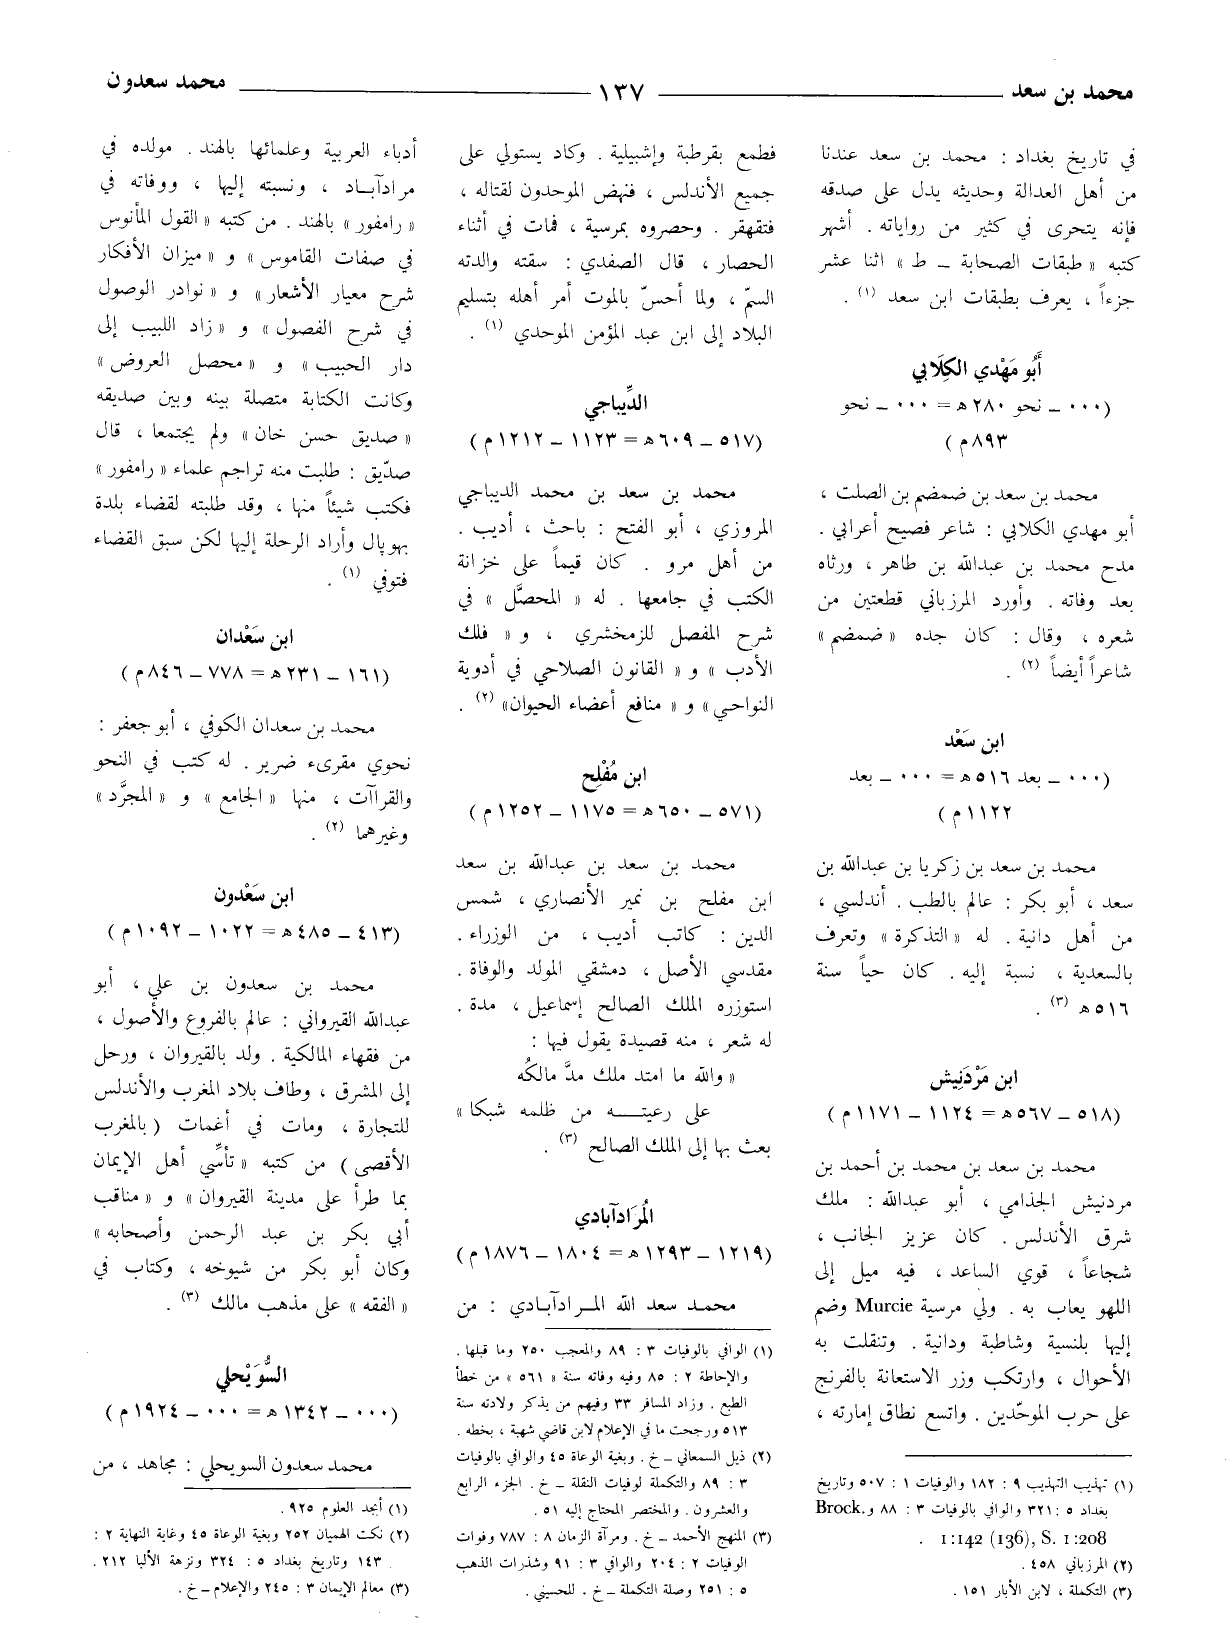 محمد بن سعد ــــــ ١٣٧ ــــــ محمد سعدون
في تاريخ بغداد : محمد بن سعد عندنا
من أهل العدالة وحديثه يدل على صدقه
فإنه يتحرى في كثير من رواياته . أشهر
كتبه « طبقات الصحابة ــ ط » اثنا عشر
جزءاً ، يعرف بطبقات ابن سعد (١) .
أَبُو مَهْدي الكِلَابي
(٠٠٠ ــ نحو ٢٨٠ هـ = ٠٠٠ ــ نحو
٨٩٣م )
محمد بن سعد بن ضمضم بن الصلت ،
أبو مهدي الكلابي : شاعر فصيح أعرابي .
مدح محمد بن عبدالله بن طاهر ، ورثاه
بعد وفاته . وأورد المرزباني قطعتين من
شعره ، وقال : كان جده « ضمضم »
شاعراً أيضاً (٢) .
ابن سَعْد
(٠٠٠ ــ بعد ٥١٦ هـ = ٠٠٠ ــ بعد
١١٢٢م )
محمد بن سعد بن زكريا بن عبدالله بن
سعد ، أبو بكر : عالم بالطب . أندلسي ،
من أهل دانية . له « التذكرة » وتعرف
بالسعدية ، نسبة إليه . كان حياً سنة
٥١٦ هـ (٣) .
ابن مَرْدَنِيش
(٥١٨ ــ ٥٦٧ هـ = ١١٢٤ ــ ١١٧١م )
محمد بن سعد بن محمد بن أحمد بن
مردنيش الجذامي ، أبو عبدالله : ملك
شرق الأندلس . كان عزيز الجانب ،
شجاعاً ، قوي الساعد ، فيه ميل إلى
اللهو يعاب به . ولي مرسية Murcie وضم
إليها بلنسية وشاطبة ودانية . وتنقلت به
الأحوال ، وارتكب وزر الاستعانة بالفرنج
على حرب الموحّدين . واتسع نطاق إمارته ،
(١) تهذيب التهذيب ٩ : ١٨٢ والوفيات ١ : ٥٠٧ وتاريخ
بغداد ٥ : ٣٢١ والوافي بالوفيات ٣ : ٨٨ و Brock.
1:142 (136), S. 1:208 .
(٢) المرزباني ٤٥٨ .
(٣) التكملة ، لابن الأبار ١٥١ .
فطمع بقرطبة وإشبيلية . وكاد يستولي على
جميع الأندلس ، فنهض الموحدون لقتاله ،
فتقهقر . وحصروه بمرسية ، فمات في أثناء
الحصار ، قال الصفدي : سقته والدته
السمّ ، ولما أحسّ بالموت أمر أهله بتسليم
البلاد إلى ابن عبد المؤمن الموحدي (١) .
الدِّيباجي
(٥١٧ ــ ٦٠٩ هـ = ١١٢٣ ــ ١٢١٢م )
محمد بن سعد بن محمد الديباجي
المروزي ، أبو الفتح : باحث ، أديب .
من أهل مرو . كان قيماً على خزانة
الكتب في جامعها . له « المحصَّل » في
شرح المفصل للزمخشري ، و « فلك
الأدب » و « القانون الصلاحي في أدوية
النواحي» و « منافع أعضاء الحيوان» (٢) .
ابن مُفْلِح
(٥٧١ ــ ٦٥٠ هـ = ١١٧٥ ــ ١٢٥٢م )
محمد بن سعد بن عبدالله بن سعد
ابن مفلح بن نمير الأنصاري ، شمس
الدين : كاتب أديب ، من الوزراء .
مقدسي الأصل ، دمشقي المولد والوفاة .
استوزره الملك الصالح إسماعيل ، مدة .
له شعر ، منه قصيدة يقول فيها :
« والله ما امتد ملك مدَّ مالكُه
على رعيتــــه من ظلمه شبكا »
بعث بها إلى الملك الصالح (٣) .
المُرَادآبادي
(١٢١٩ ــ ١٢٩٣ هـ = ١٨٠٤ ــ ١٨٧٦م )
محمد سعد الله المرادآبادي : من
(١) الوافي بالوفيات ٣ : ٨٩ والمعجب ٢٥٠ وما قبلها .
والإحاطة ٢ : ٨٥ وفيه وفاته سنة « ٥٦١ » من خطأ
الطبع . وزاد المسافر ٣٣ وفيهم من يذكر ولادته سنة
٥١٣ ورجحت ما في الإعلام لابن قاضي شهبة ، بخطه .
(٢) ذيل السمعاني ــ خ . وبغية الوعاة ٤٥ والوافي بالوفيات
٣ : ٨٩ والتكملة لوفيات النقلة ــ خ . الجزء الرابع
والعشرون . والمختصر المحتاج إليه ٥١ .
(٣) المنهج الأحمد ــ خ . ومرآة الزمان ٨ : ٧٨٧ وفوات
الوفيات ٢ : ٢٠٤ والوافي ٣ : ٩١ وشذرات الذهب
٥ : ٢٥١ وصلة التكملة ــ خ . للحسيني .
أدباء العربية وعلمائها بالهند . مولده في
مرادآباد ، ونسبته إليها ، ووفاته في
« رامفور » بالهند . من كتبه « القول المأنوس
في صفات القاموس » و « ميزان الأفكار
شرح معيار الأشعار» و « نوادر الوصول
في شرح الفصول » و « زاد اللبيب إلى
دار الحبيب » و « محصل العروض »
وكانت الكتابة متصلة بينه وبين صديقه
« صديق حسن خان » ولم يجتمعا ، قال
صدّيق : طلبت منه تراجم علماء « رامفور »
فكتب شيئاً منها ، وقد طلبته لقضاء بلدة
بهوپال وأراد الرحلة إليها لكن سبق القضاء
فتوفي (١) .
ابن سَعْدان
(١٦١ ــ ٢٣١ هـ = ٧٧٨ ــ ٨٤٦م )
محمد بن سعدان الكوفي ، أبو جعفر :
نحوي مقرىء ضرير . له كتب في النحو
والقراآت ، منها « الجامع » و « المجرَّد »
وغيرهما (٢) .
ابن سَعْدون
(٤١٣ ــ ٤٨٥ هـ = ١٠٢٢ ــ ١٠٩٢م )
محمد بن سعدون بن علي ، أبو
عبدالله القيرواني : عالم بالفروع والأصول ،
من فقهاء المالكية . ولد بالقيروان ، ورحل
إلى المشرق ، وطاف بلاد المغرب والأندلس
للتجارة ، ومات في أغمات ( بالمغرب
الأقصى ) من كتبه « تأسِّي أهل الإيمان
بما طرأ على مدينة القيروان » و « مناقب
أبي بكر بن عبد الرحمن وأصحابه »
وكان أبو بكر من شيوخه ، وكتاب في
« الفقه » على مذهب مالك (٣) .
السُّوَيْحلي
(٠٠٠ ــ ١٣٤٢ هـ = ٠٠٠ ــ ١٩٢٤م )
محمد سعدون السويحلي : مجاهد ، من
(١) أبجد العلوم ٩٢٥ .
(٢) نكت الهميان ٢٥٢ وبغية الوعاة ٤٥ وغاية النهاية ٢ :
١٤٣ وتاريخ بغداد ٥ : ٣٢٤ ونزهة الألبا ٢١٢ .
(٣) معالم الإيمان ٣ : ٢٤٥ والإعلام ــ خ .